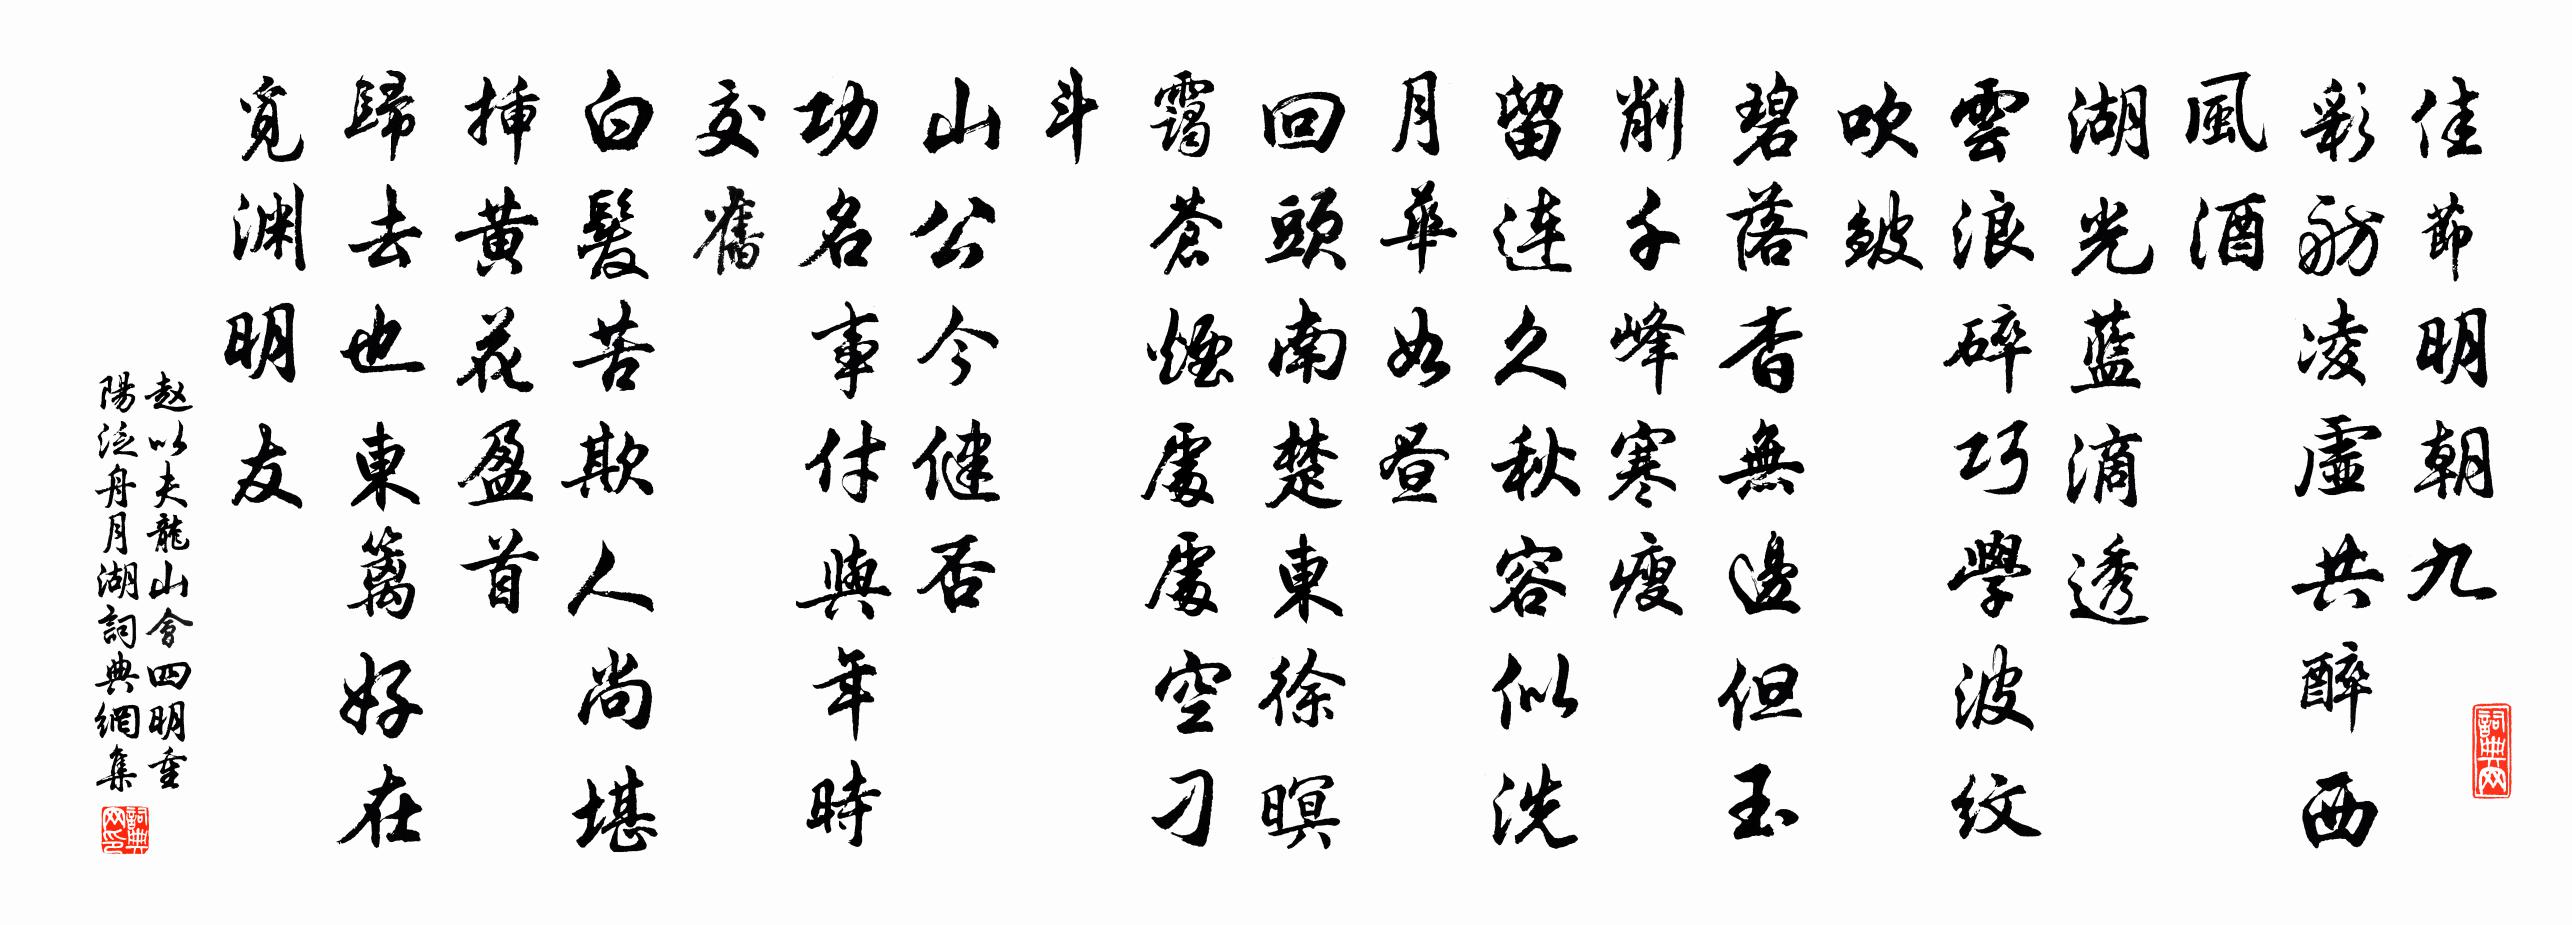 佳節明朝九
彩舫凌虛共醉西
風酒
湖光藍滴透
雲浪碎巧學波紋
吹皺
碧落杳無邊但玉
削千峰寒瘦
留連久秋容似洗
月華如晝
回頭南楚東徐暝
靄蒼煙處處空刁
斗
山公今健否
功名事付與年時
交舊
白髮苦欺人尚堪
插黃花盈首
歸去也東籬好在
覓淵明友
赵以夫龍山會四明重
陽泛舟月湖詞典網集
詞典网
詞典网印